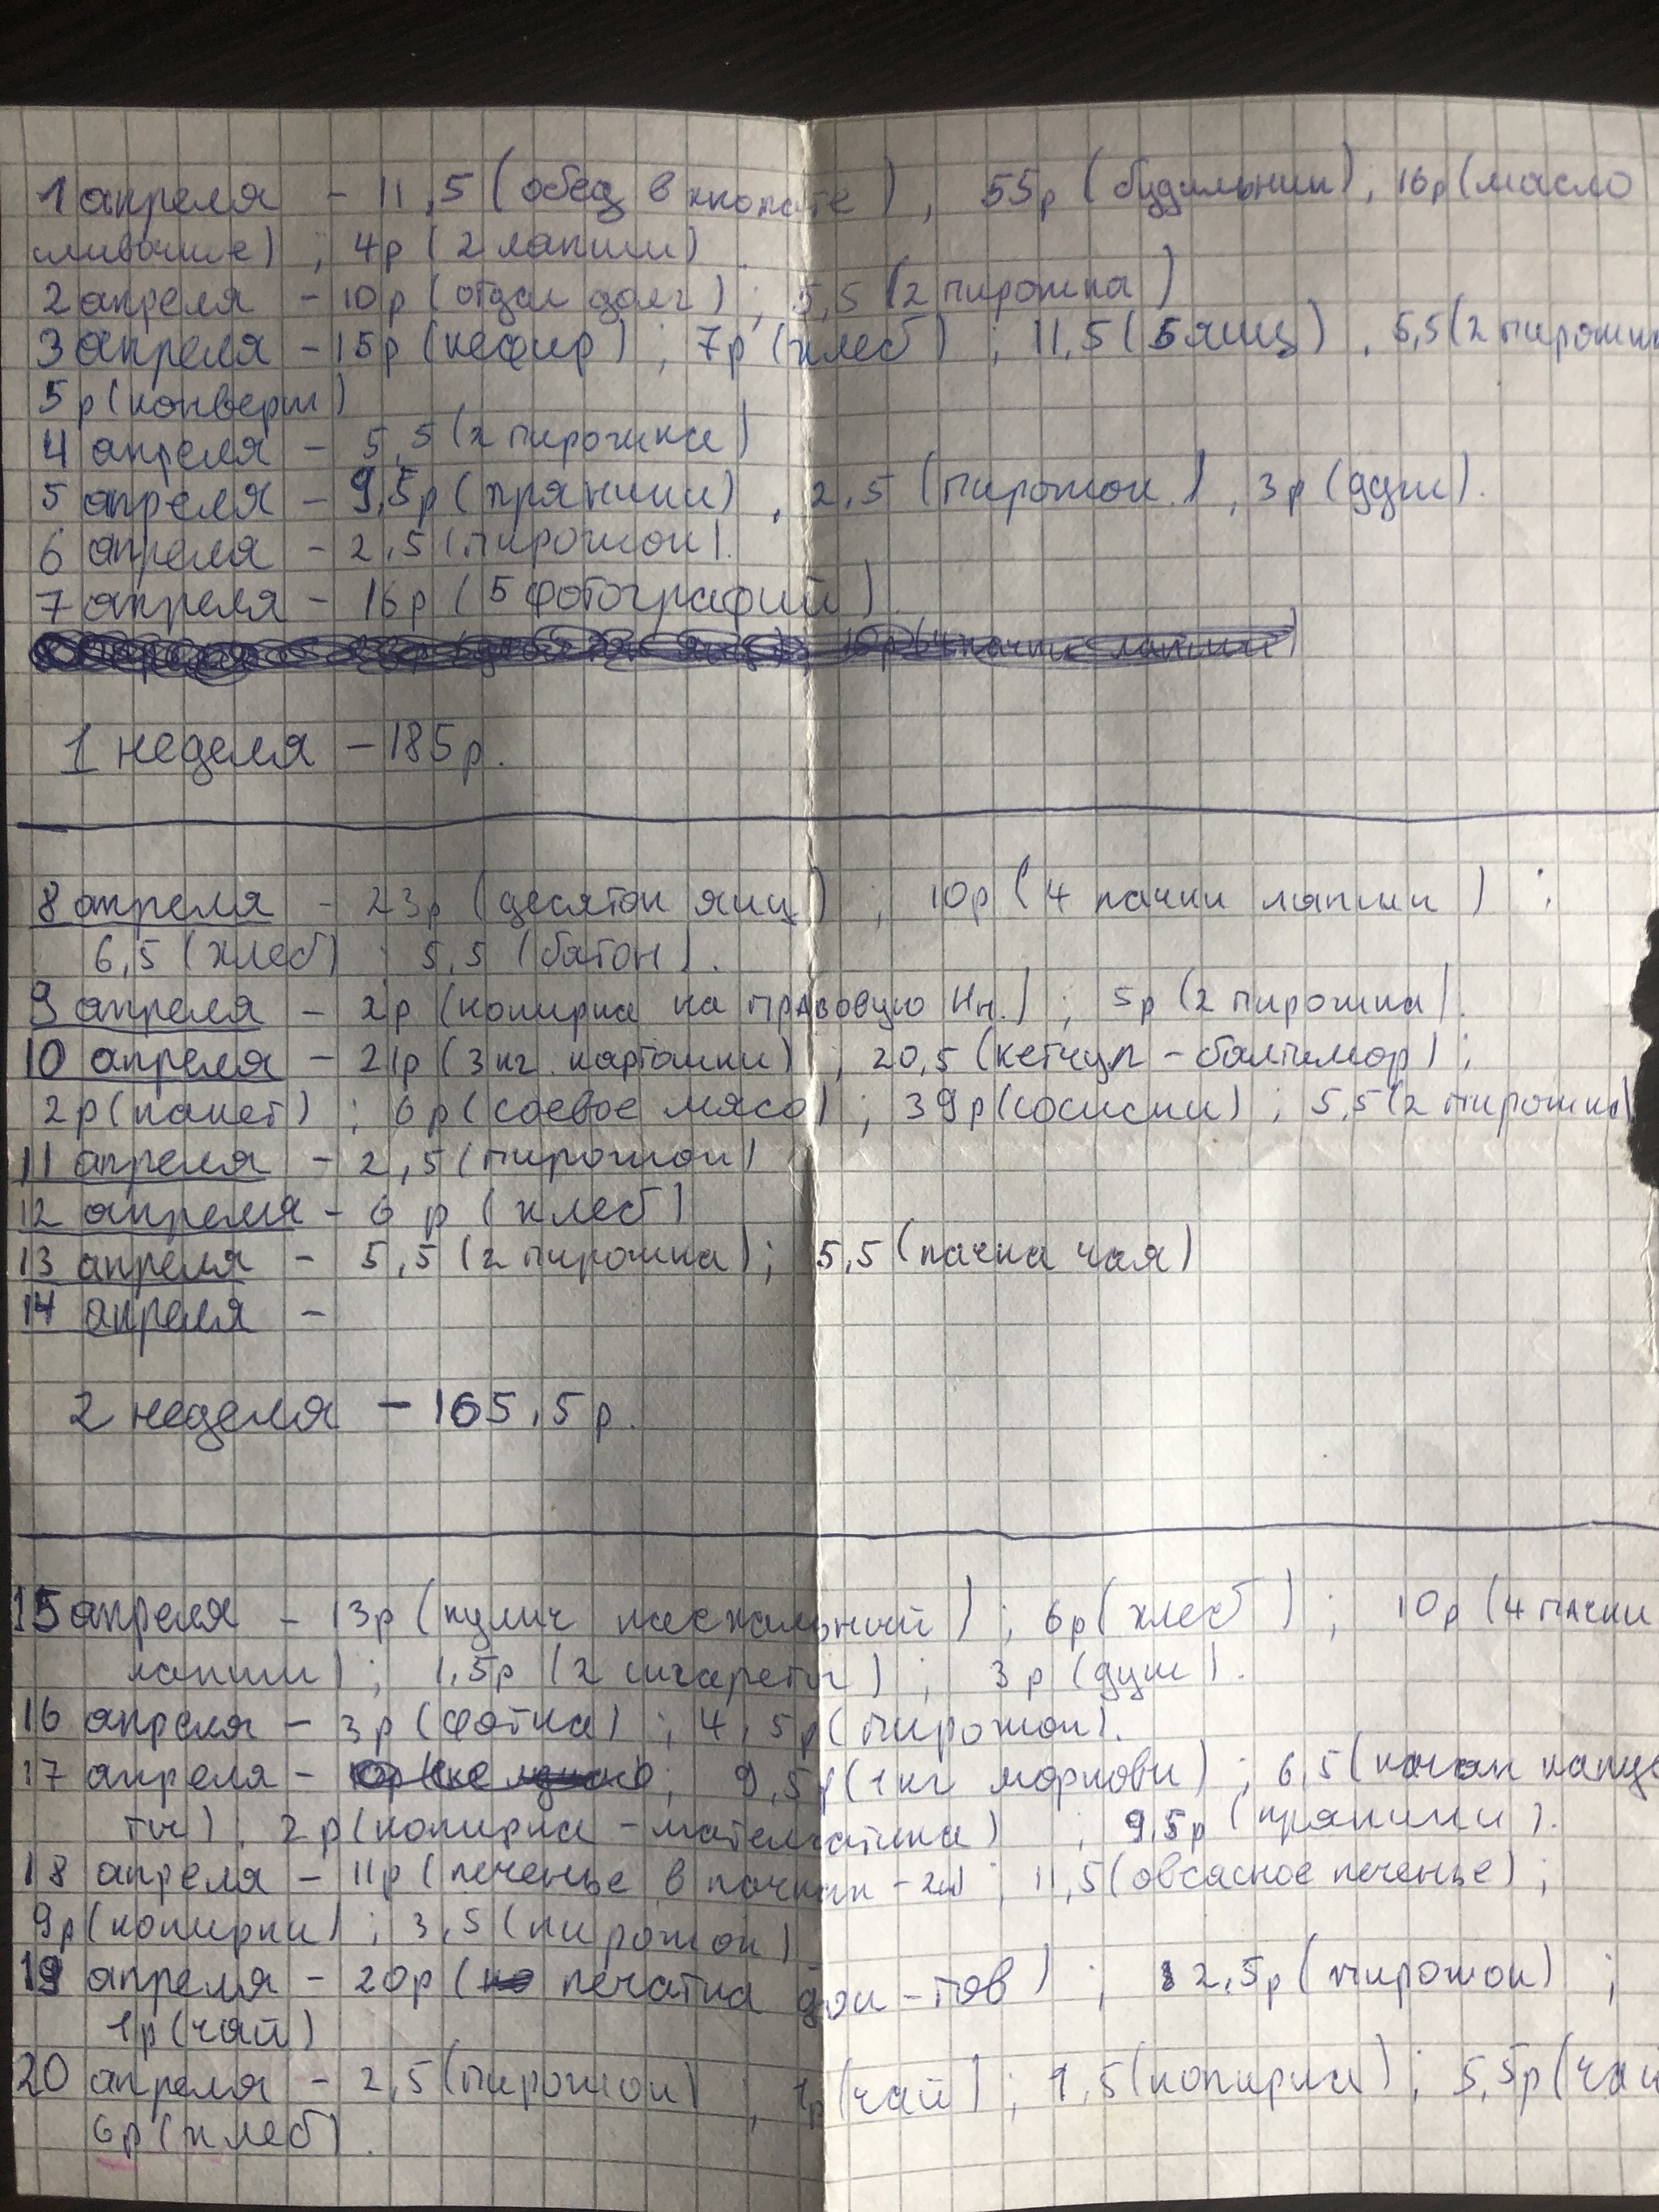 1 апреля – 11,5 (обед в ), 55р (будильник), 16р (масло
сливочное); 4р (2 лапши).
2 апреля – 10р (отдал долг); 5,5 (2 пирожка)
3 апреля – 15р (кефир); 7р (хлеб); 11,5 (5 яиц), 5,5 (2 пирожка
5р (конверт)
4 апреля – 5,5 (2 пирожка)
5 апреля – 9,5р (пряники), 2,5 (пирожок), 3р (душ).
6 апреля – 2,5 (пирожок).
7 апреля – 16р (5 фотографий).
10р (4 пачки лапши)
1 неделя – 185р.
8 апреля – 23р (десяток яиц); 10р (4 пачки лапши);
6,5 (хлеб); 5,5 (батон).
9 апреля – 2р (копирка на правовую Ин.); 5р (2 пирожка).
10 апреля – 21р (3 кг. картошки); 20,5 (кетчуп – балтимор);
2р (пакет); 6р (соевое мясо); 39р (сосиски); 5,5 (2 пирожка)
11 апреля – 2,5 (пирожок)
12 апреля – 6 р (хлеб)
13 апреля – 5,5 (2 пирожка); 5,5 (пачка чая)
14 апреля –
2 неделя – 165,5р.
15 апреля – 13р (кулич пасхальный); 6р (хлеб); 10р (4 пачки
лапши); 1,5р (2 сигареты); 3р (душ).
16 апреля – 3р (фотка); 4,5р (пирожок).
17 апреля – ; 9,5р (1 кг моркови); 6,5 (кочан капус
ты); 2р (копирка – математика); 9,5р (пряники).
18 апреля – 11р (печенье в пачках – 2ш); 11,5 (овсяное печенье);
9р (копирки); 3,5 (пирожок)
19 апреля – 20р (печатка док-тов); 2,5р (пирожок);
1р (чай)
20 апреля – 2,5 (пирожок); 1р (чай); 1,5 (копирка); 5,5р (чай
6р (хлеб).